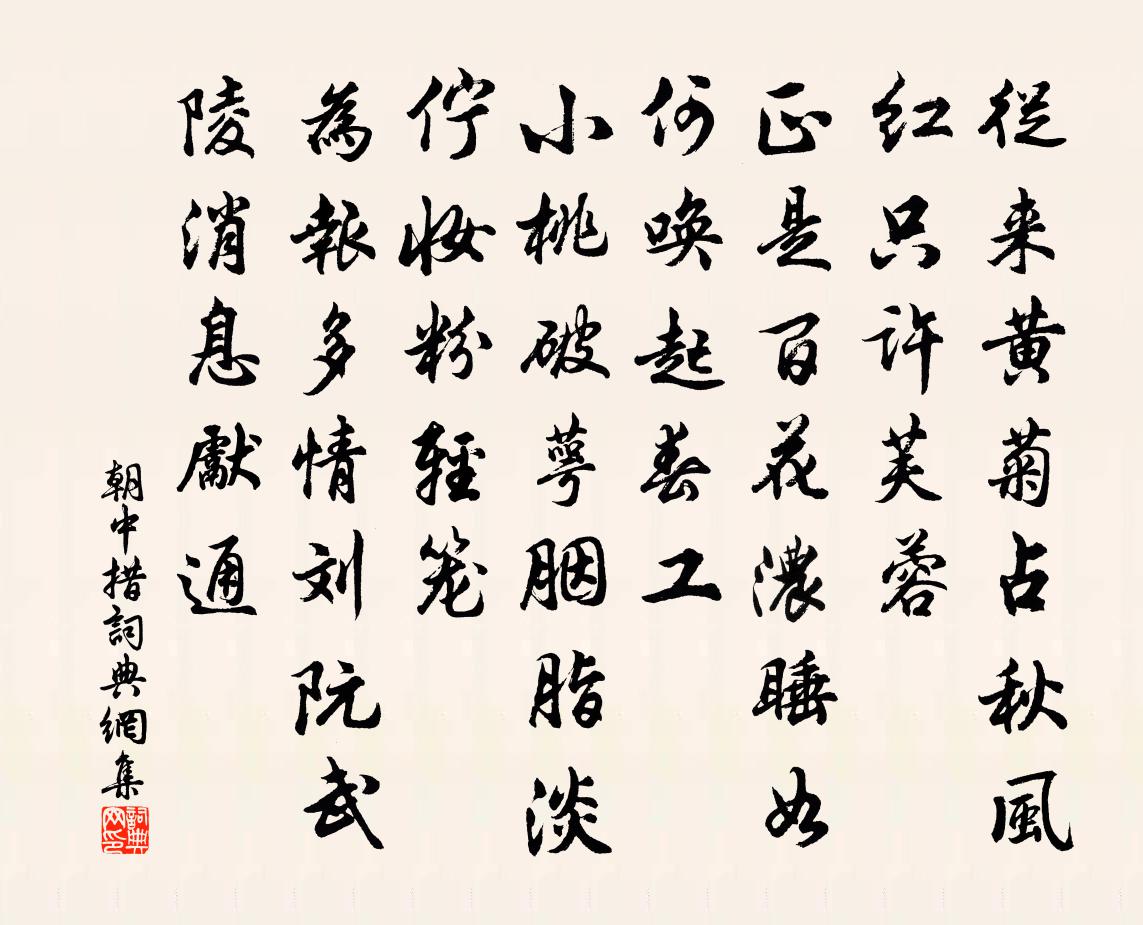 從来黄菊占秋風
红只许芙蓉
正是百花濃睡如
何唤起春工
小桃破萼胭脂淡
佇妆粉輕笼
為報多情刘阮武
陵消息獻通
朝中措詞典網集
詞典网印